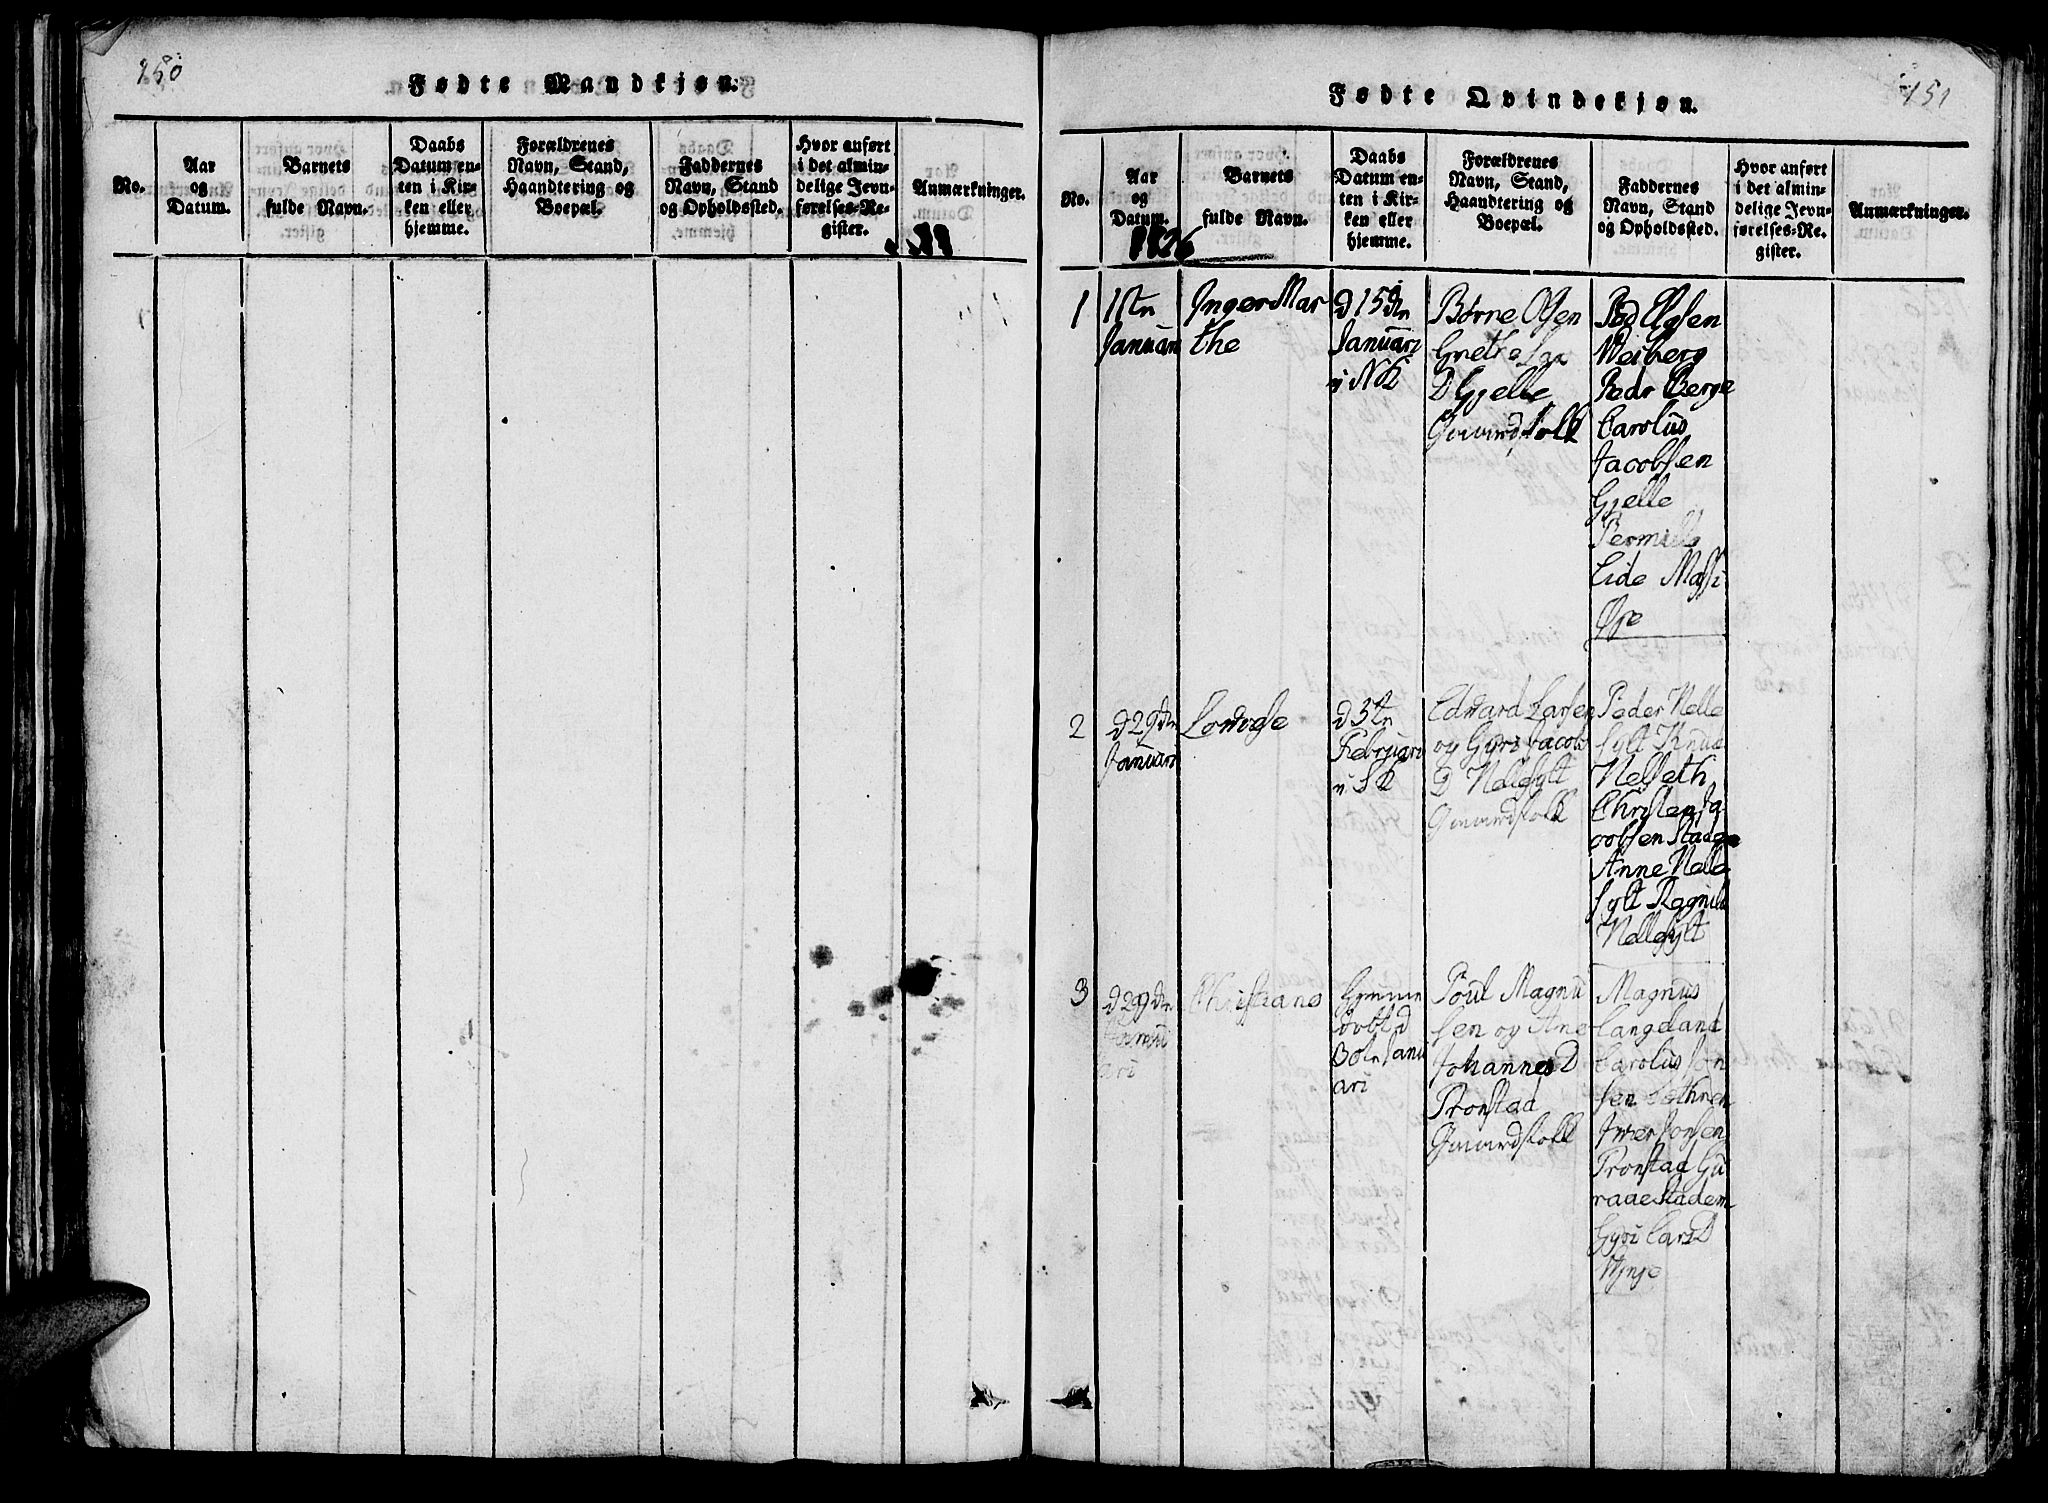 150
Fødte Mandkjøn.
No.
Aar
og
Datum.
Barnets
fulde Navn.
Daabs
Datum en-
ten i Kir-
ken eller
hjemme.
Forældrenes
Navn, Stand,
Haandtering og
Boepæl.
Faddernes
Navn, Stand
og Opholdssted.
Hvor anført
i det almin-
delige Jevn-
førelses-Re-
gister.
Anmærkninger.
151
Fødte Qvindekjøn.
No.
Aar
og
Datum.
Barnets
fulde Navn.
Daabs
Datum en-
ten i Kir-
ken eller
hjemme.
Forældrenes
Navn, Stand,
Haandtering og
Boepæl.
Faddernes
Navn, Stand
og Opholdssted.
Hvor anført
i det almin-
delige Jevn-
førelses-Re-
gister.
Anmærkninger.
1826
1
1ste
Januari
Inger Mar
the
d 15de
Januari
i NK
Børne Olsen
Grethe
D Gjelle
Gaardfolk
Ped Elgsen
Weiberg
Peder Berge
Carolus
Jacobsen
Gjelle
Pernille
Eide
2
d 29de
Januari
Lovise
d 3te
Februari
i SK
Edvard Larsen
og Gyri Jacobs
D Hellesylt
Gaardfolk
Peder Helle
sylt Knud
Helseth
Christen Ja
cobsen Stadem
Anne Helle
sylt Ragnild
Hellesylt
3
d 29de
Januari
Christiane
Hjemme
døbt d
30te Janu
ari
Poul Magnu
sen og Ane
Johannes D
Tronstad
Gaardfolk
Magnus
Langeland
Carolus Jon
sen
Iver Jonsen
Tronstad Gu
Stadem
Gyri Lars D